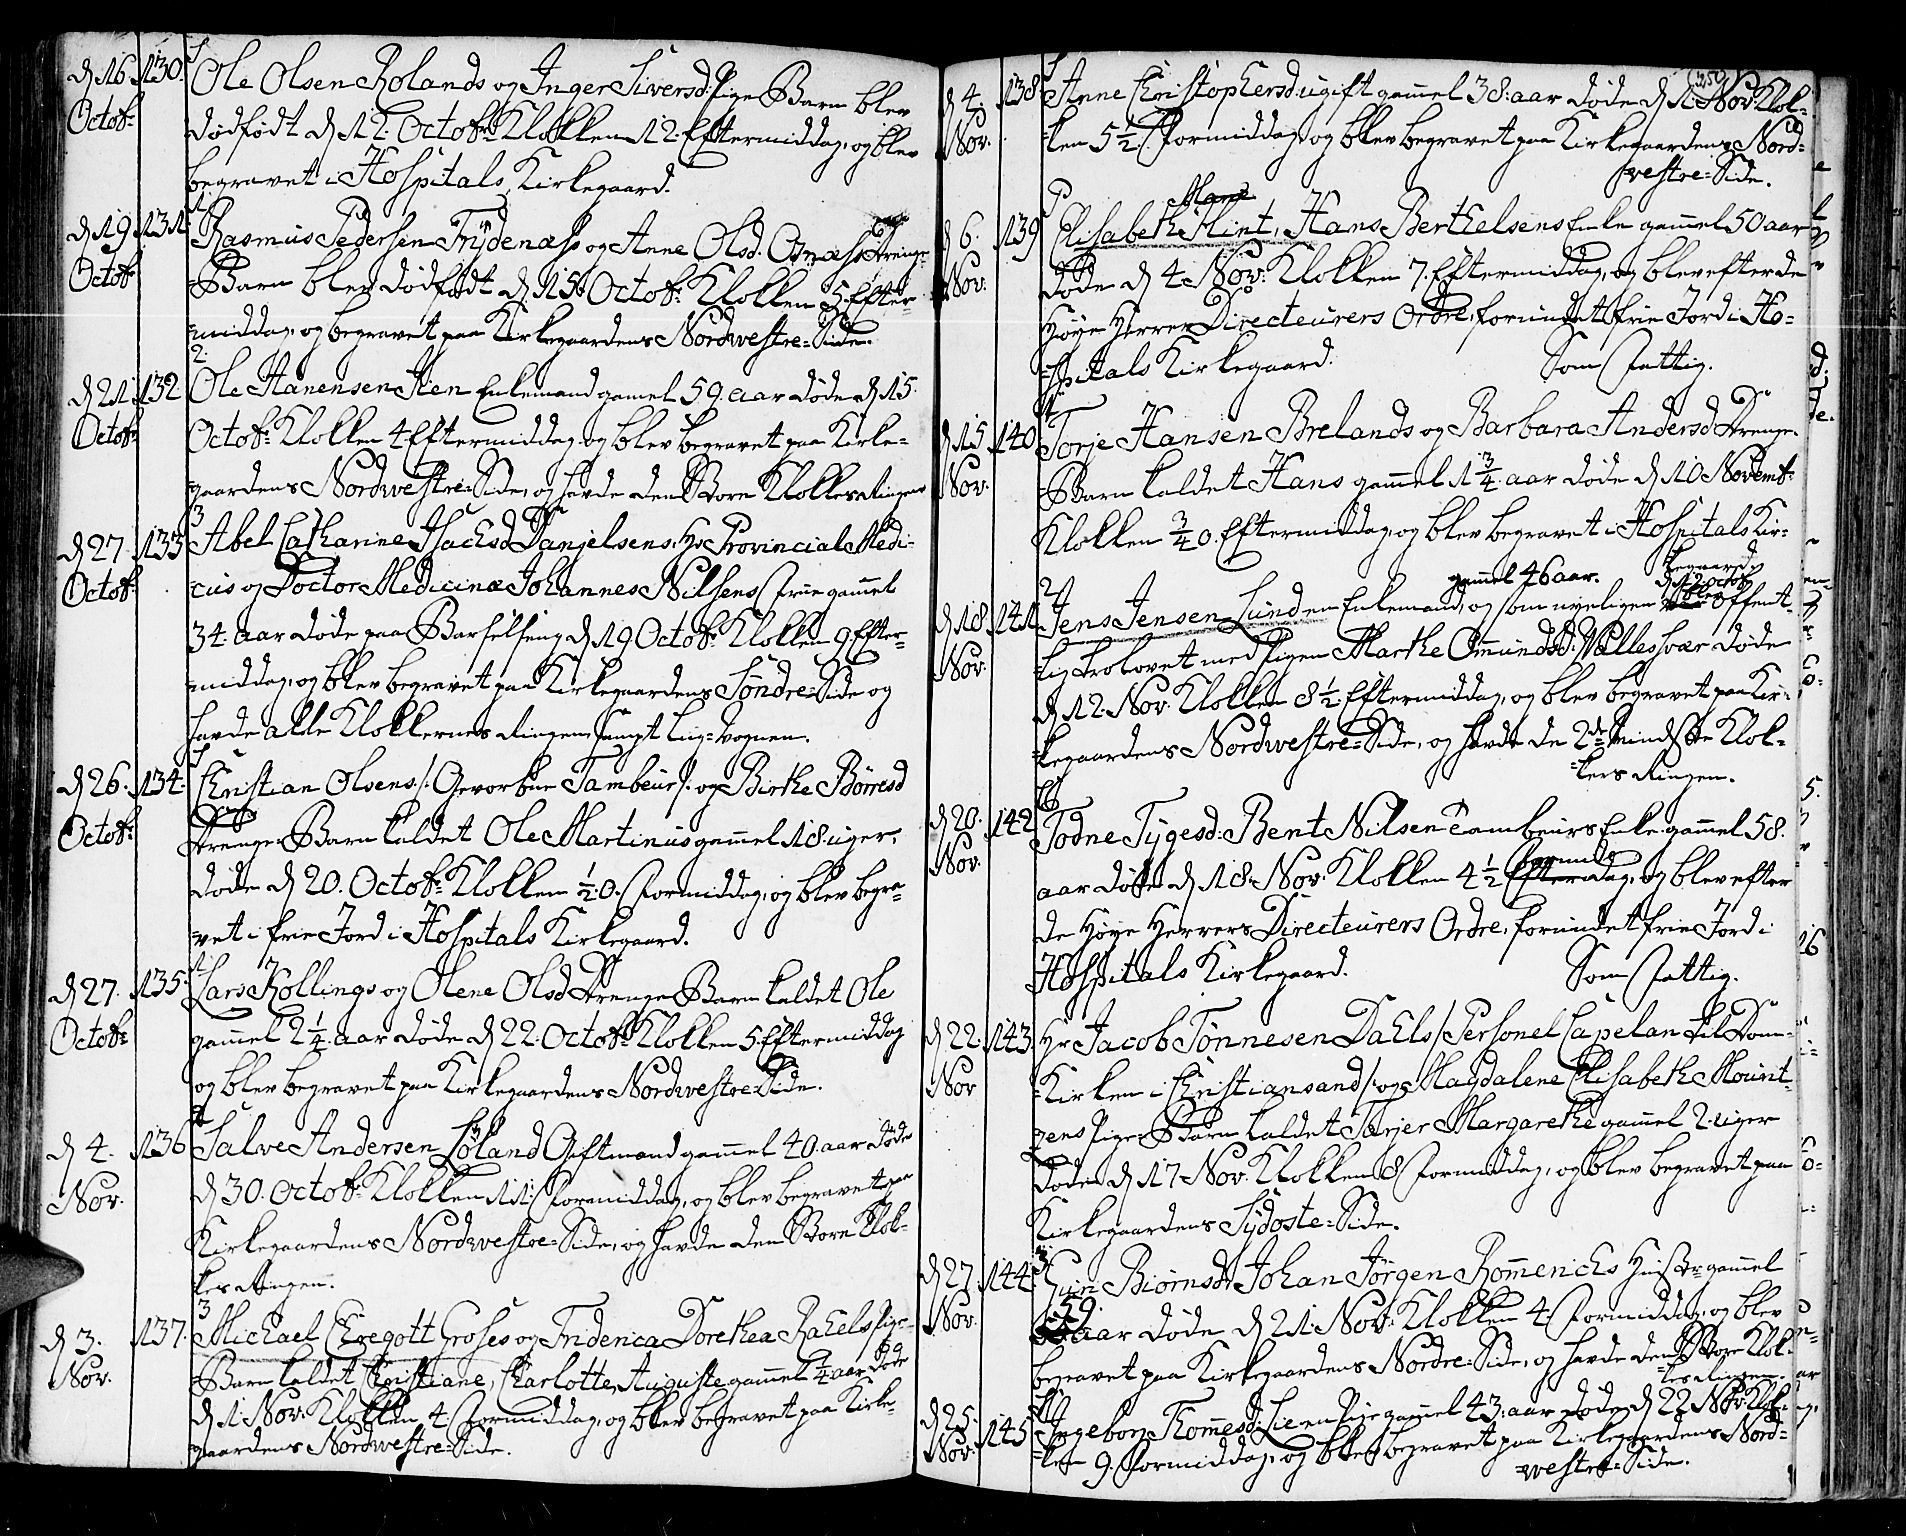 d 16 Octob: 130. Ole Olsen Rolands og Inger Siversd: Pige Barn blev
dødfødt d 12. Octob: Klokken 12. Eftermiddag, og blev
begravet i Hospitals Kirkegaard.
d 19 Octob 131. Rasmus Pedersen Frydenæs og Anne Olsd. Osnæss Drenge-
-Barn blev dødfødt d. 15. Octob: Klokken 5. Efter-
-middag, og begravet paa Kirkegaardens Nordwestre-Side.
2.
d 21 Octob: 132 Ole Hanensen Enlemand gamel 59. aar døde d 15.
Octob: Klokken 4 Eftermiddag og blev begravet paa Kirke-
gaardens Nordwestre-Side, og havde den Store Klokkes Ringen
3
d 27. Octob: 133 Abel Catharine Isachsd Danielsens, Hr Provincial Medi-
cus og Doctor Medicinæ Johannes Nilsens Frue gamel
34. aar døde paa Barselseng d 19 Octob: Klokken 9 Efter-
-middag, og blev begravet paa Kirkegaardens Søndre-Side og
havde alle Klokkernes Ringen, sampt Liig-Vognen.
d 26. Octob: 134. Christian Olsens /: Gevorbne Tambeur :/ og Birthe Børresd
Drenge-Barn kaldet Ole Martinus gamel 18. uger,
døde d 20. Octob: Klokken ½ 0. Formiddag, og blev begra-
-vet i frie Jord i Hospitals Kirkegaard.
d 27. Octob: 135. Lars Kollings og Olene Olsd Drenge Barn kaldet Ole
gamel 2¼ aar døde d 22. Octob: Klokken 5. Eftermiddag
og blev begravet paa Kirkegaardens Nordwestre Side.
d 4. Nov. 136 Salve Andersen Løland Giftmand gamel 40. aar døde
d 30. Octob: Klokken 11. Formiddag, og blev begravet paa
Kirkegaardens Nordwestre-Side, og havde den Store Klok-
kes Ringen.
3
d 3. Nov. 137. Michael Ehregott Groses og Friderica Dorethea Rahels Pige-
-Barn kaldet Christiane, Charlotte, Auguste gamel ¼ aar døde
d 1. Nov. Klokken 4 Formiddag, og blev begravet paa Kirke-
gaardens Nordwestre-Side.
d 4. Nov. 138 Anne Christophersd: ugift gamel 38. aar døde d 1. Nov. Klok-
-ken 5½ Formiddag, og blev begravet paa Kirkegaardens Nord-
westre-Side.
d 6. Nov. 139 Elisabeth Hint, Hans Berthelsens Enke gamel 50 aar
døde d 4. Nov: Klokken 7. Eftermiddag, og blev efter de
Høye Herrer Directeurers Ordre, forundt frie Jord i Ho-
-spitals Kirkegaard. Som Fattig.
d 15 Nov. 140 Torje Hansen Brelands og Barbara Andersd Drenge-
-Barn kaldet Hans gamel 1¾ aar døde d 10 Novemb:
Klokken ¾ 0. Eftermiddag, og blev begravet i Hospitals Kir-
kegaard
gamel 46 aar. d 12 Octob
d 18. Nov. 141. Jens Jensen Lund en Enkemand, og som nyeligen blev offent-
-lig trolovet med Pigen Marthe Omundsd: døde
d 12. Nov. Klokken 8½ Eftermiddag, og blev begravet paa Kir-
-kegaardens Nordwestre-Side, og havde de 2de Mindste Klok-
-kers Ringen.
d 20. Nov. 142 Todne Tygesd: Bent Nilsen Tambeurs Enke gamel 58.
aar døde d 18. Nov. Klokken 4½ Formiddag, og blev efter
de Høye Herrers Directeurers Ordre, forundet frie Jord i
Hospitals Kirkegaard. Som Fattig.
d 22. Nov 143. Hr Jacob Tønnesen Dahls /: Personel Capelan til Dom-
-Kirken i Christiansand :/ og Magdalene Elisabeth Mount-
zens Pige-Barn kaldet Tarjer Margarethe gamel 2. uger
døde d 17 Nov. Klokken 8 Formiddag, og blev begravet paa
Kirkegaardens Sydoste-Side.
3
d 27. Nov. 144. Guri Biørnsdr Johan Jørgen Rommerichs Hustr: gamel
59. aar døde d 21. Nov: Klokken 4. Formiddag, og blev
begravet paa Kirkegaardens Nordre-Side, og havde den Store Klok-
kes Ringen.
d 25. Nov. 145 Ingeborg Thomesd: Lie en Pige gamel 43. aar døde d 22 Nov: Klok-
-ken 9. Formiddag, og blev begravet paa Kirkegaardens Nord-
-westre-Side.